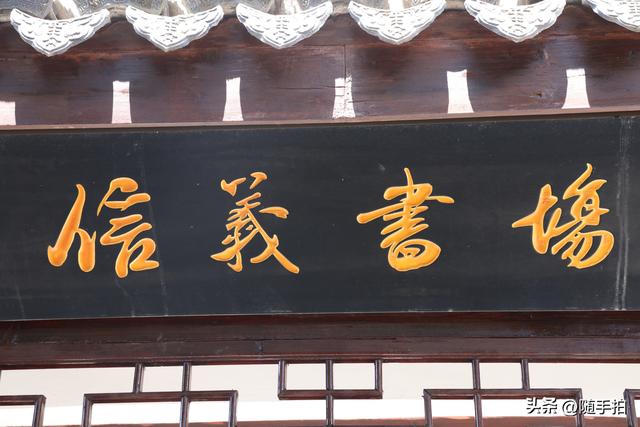 信義書場
头条 @随手拍